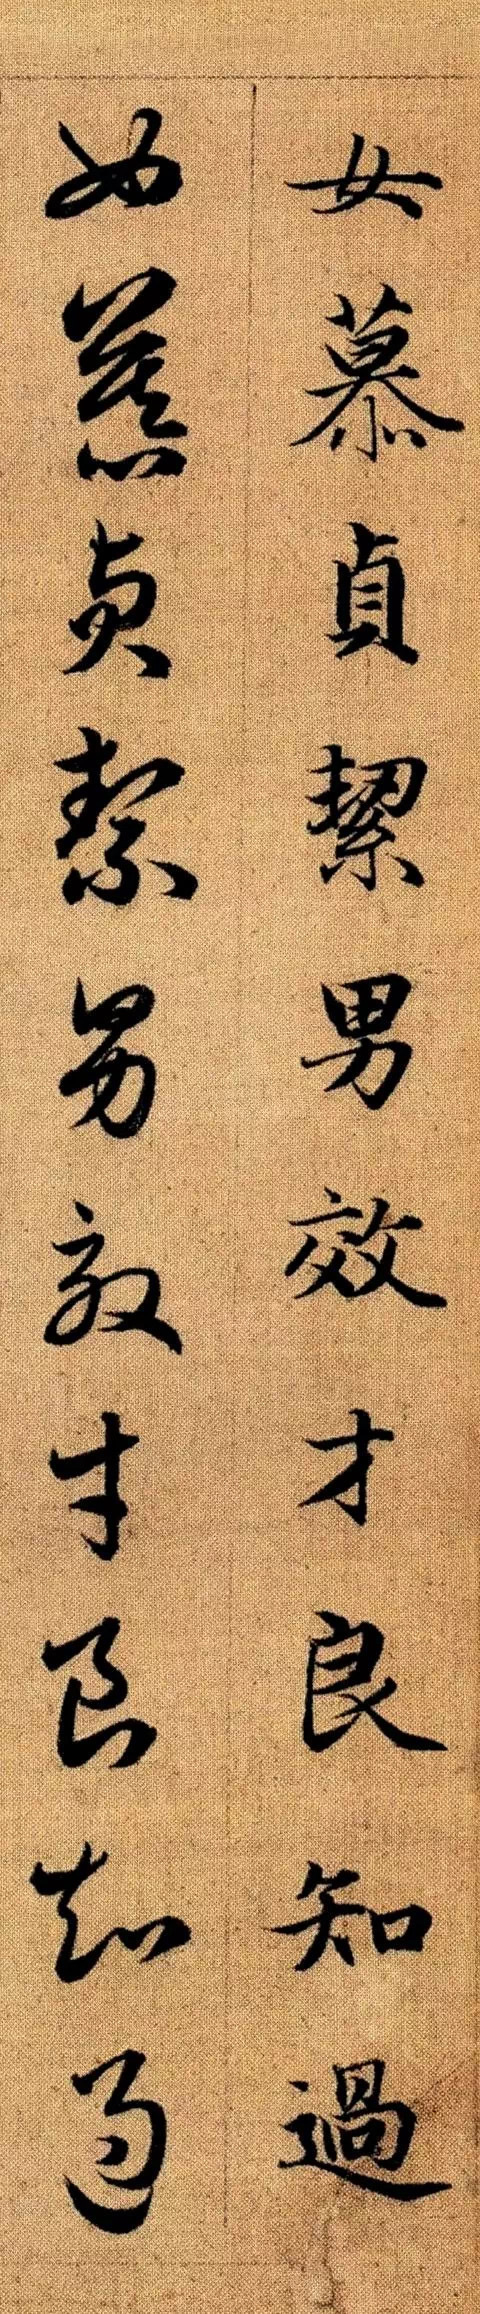 女慕貞絜男效才良知過
女慕貞絜男效才良知過